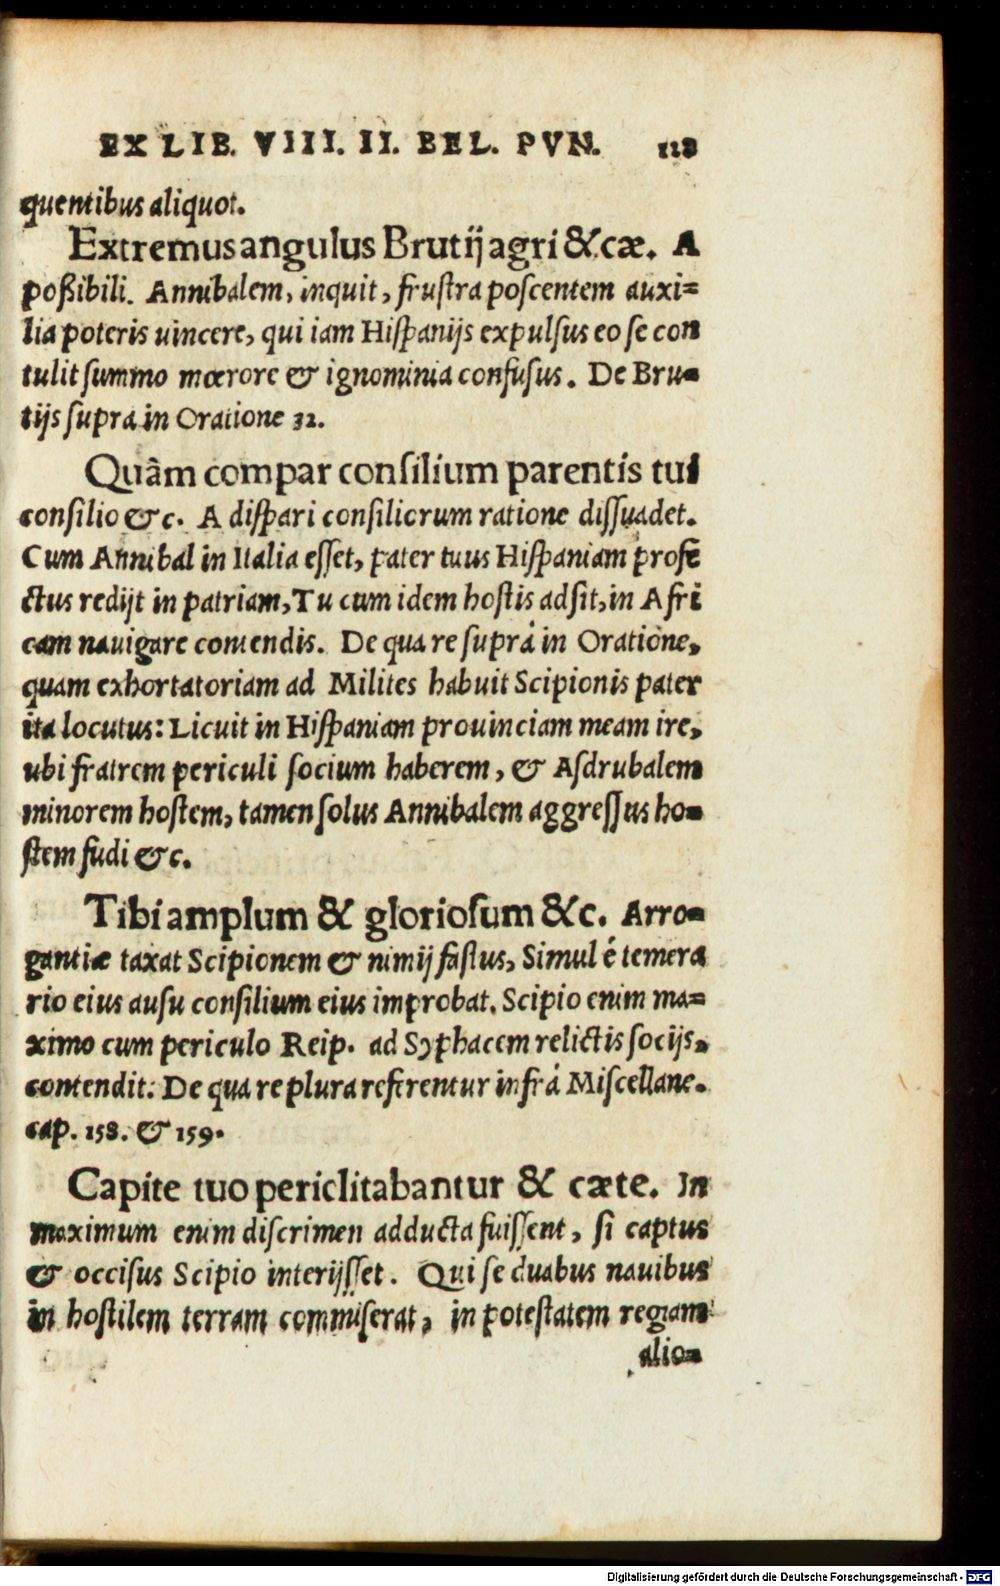 EX LIB. VIII. II. BEL. PVN. 118
quentibus aliquot.
Extremus angulus Brutij agri &cæ. A
poßibili. Annibalem, inquit, frustra poscentem auxi=
lia poteris uincere, qui iam Hispanijs expulsus eo se con
tulit summo mœrore & ignominia confusus. De Bru=
tijs supra in Oratione 32.
Quâm compar consilium parentis tui
consilio &c. A dispari consiliorum ratione dissuadet.
Cum Annibal in Italia esset, pater tuus Hispaniam profe
ctus redijt in patriam, Tu cum idem hostis adsit, in Afri
cam nauigare contendis. De qua re suprà in Oratione,
quam exhortatoriam ad Milites habuit Scipionis pater
ita locutus: Licuit in Hispaniam prouinciam meam ire,
ubi fratrem periculi socium haberem, & Asdrubalem
minorem hostem, tamen solus Annibalem aggressus ho=
stem fudi &c.
Tibi amplum & gloriosum &c. Arro=
gantiæ taxat Scipionem & nimij fastus, Simul é temera
rio eius ausu consilium eius improbat. Scipio enim ma=
ximo cum periculo Reip. ad Syphacem relictis socijs,
contendit: De qua re plura referentur infrá Miscellane.
cap. 158. & 159.
Capite tuo periclitabantur & cæte. In
maximum enim discrimen adducta fuissent, si captus
& occisus Scipio interijsset. Qui se duabus nauibus
in hostilem terram commiserat, in potestatem regiam
alio=
Digitalisierung gefördert durch die Deutsche Forschungsgemeinschaft - DFG